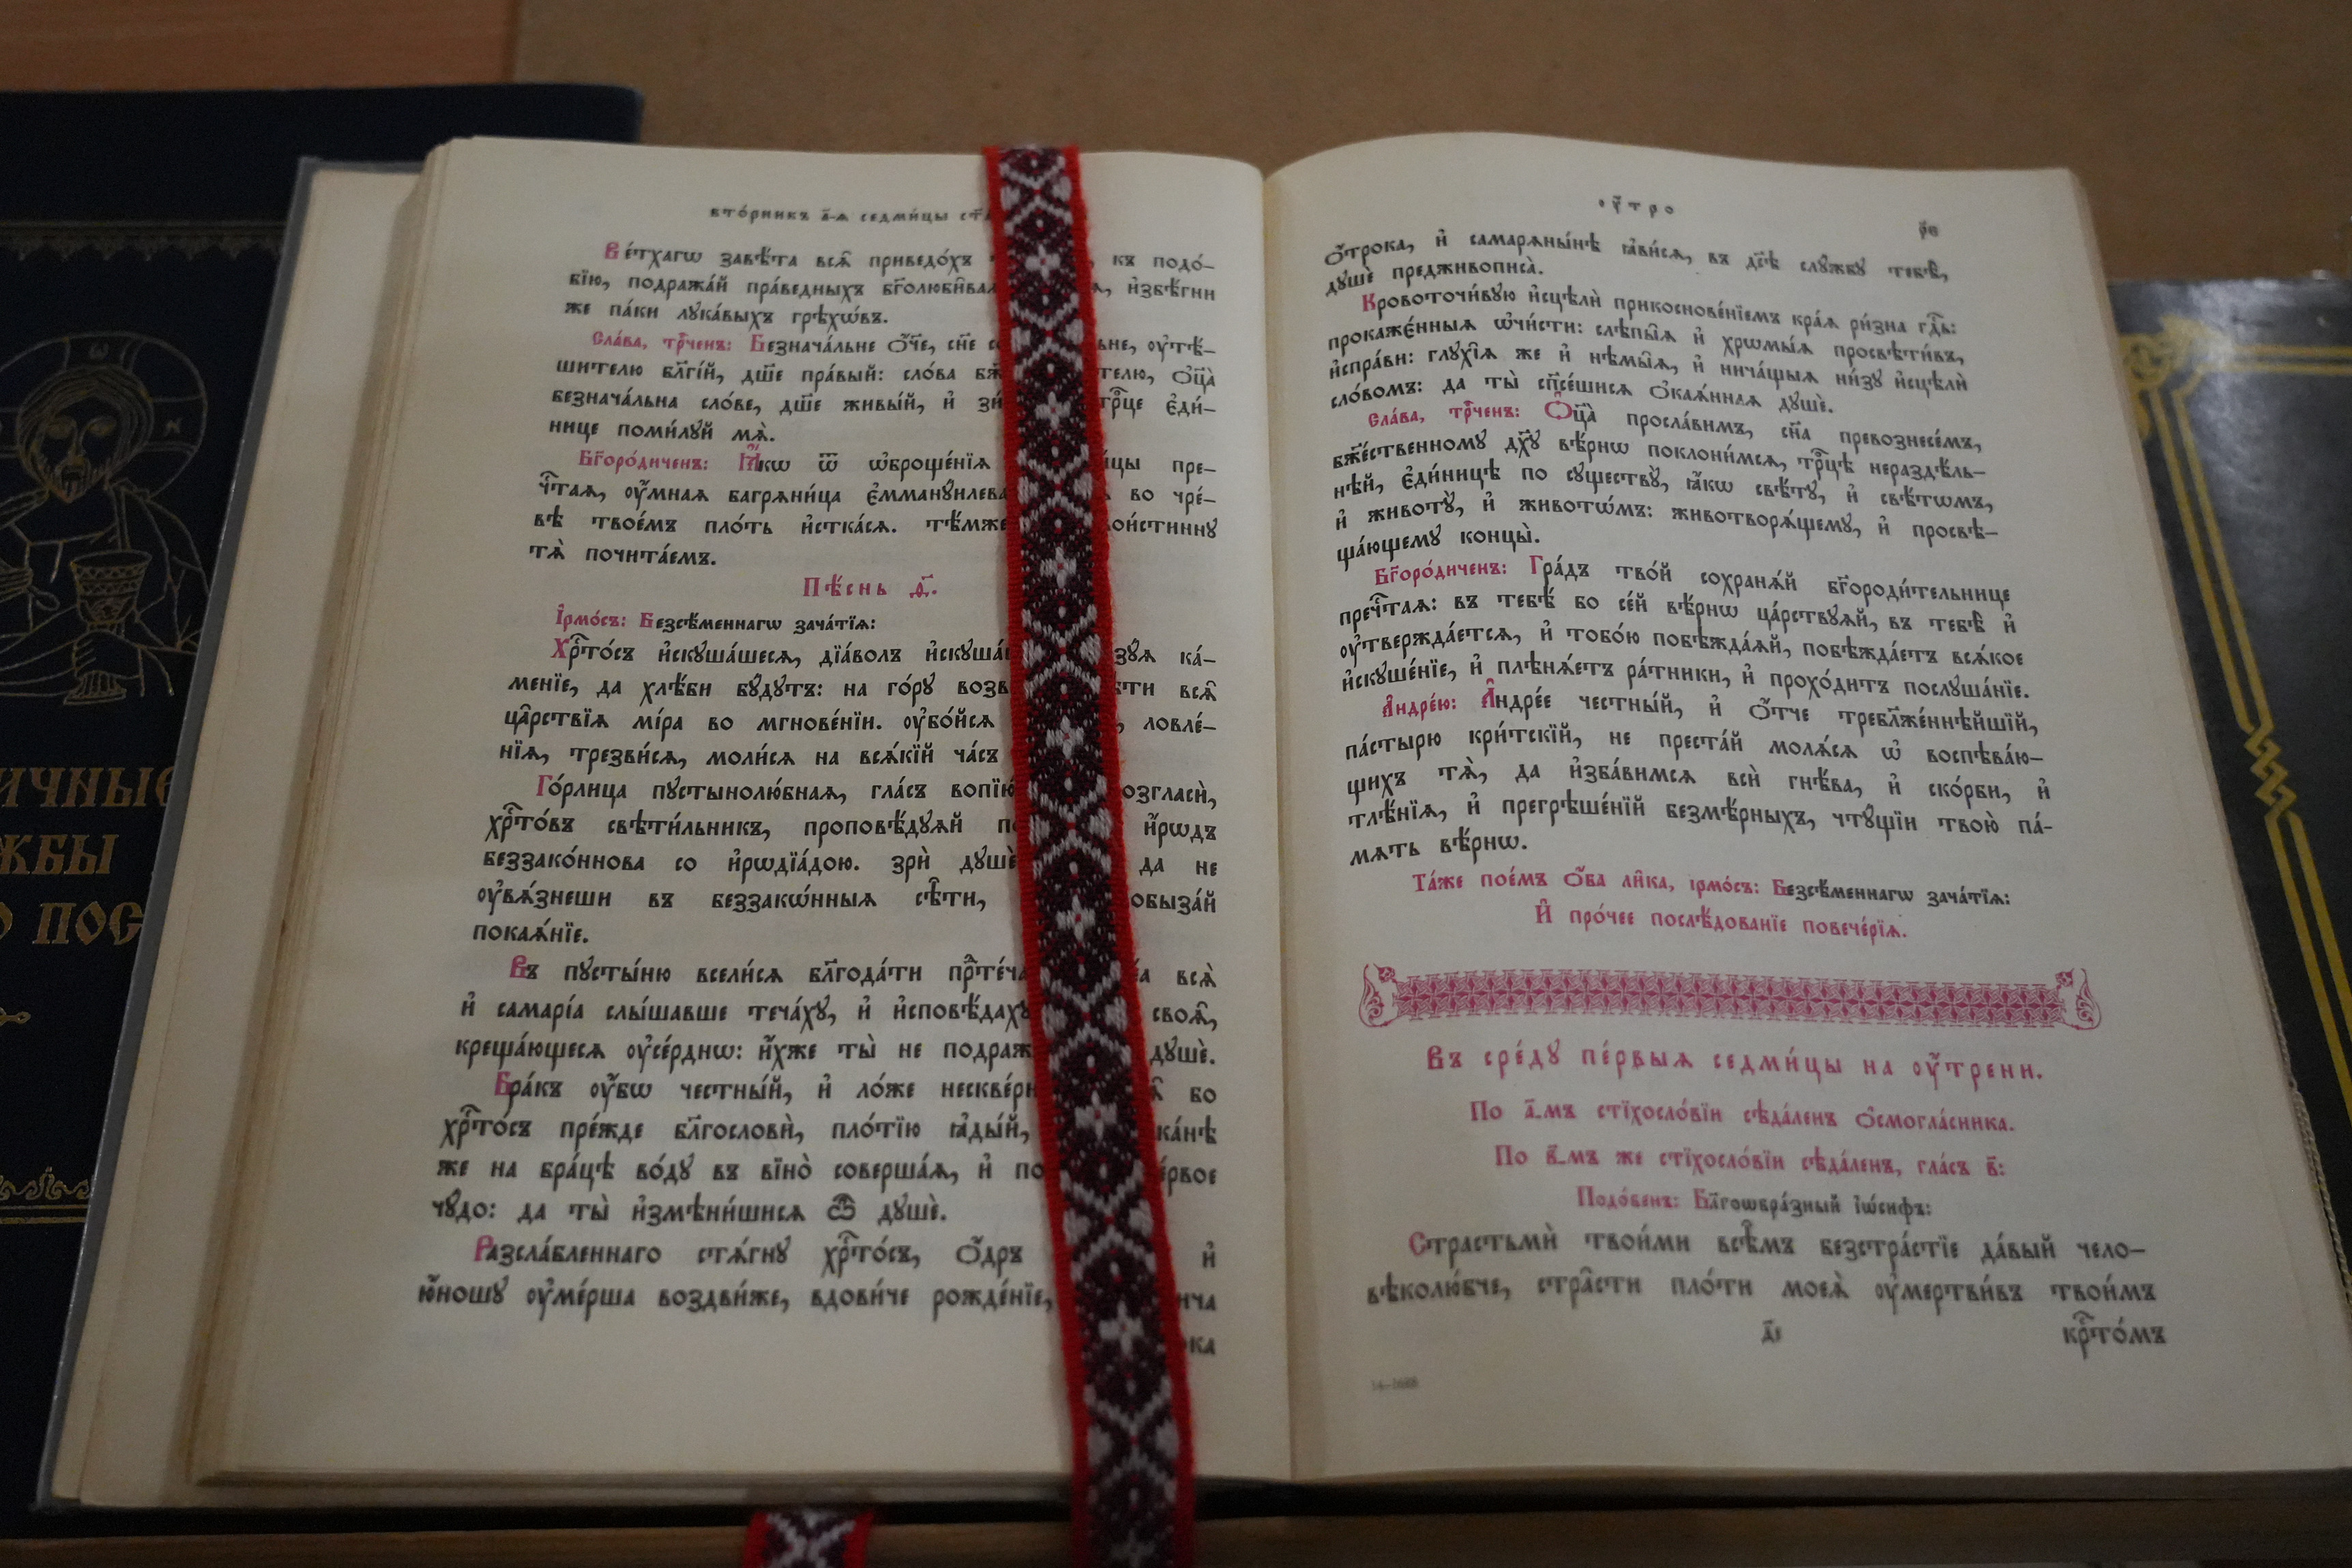 ичные
жбы
пос
вто́рникъ а҃-ѧ седми́цы
Ве́тхагѡ завѣ́та всѧ̑ приведо́хъ къ подо́-
бїю, подража́й пра́ведныхъ и҆збѣ́гни
же па́ки лука́выхъ грѣхѡ́въ.
Сла́ва, трⷪ҇ченъ: Безнача́льне ѻ҆́ч҃е, сн҃е ᲂу҆тѣ́-
шителю бл҃гі́й, дш҃е пра́вый: сло́ва ѻ҆ц҃а̀
безнача́льна сло́ве, дш҃е живы́й, и҆ трⷪ҇це є҆ди́-
нице поми́лꙋй мѧ̀.
Бг҃оро́диченъ: Ꙗ҆́кѡ ѿ ѡ҆броще́нїѧ пре-
чⷭ҇таѧ, ᲂу҆́мнаѧ багрѧни́ца є҆мманꙋи́лева во чре́-
вѣ твое́мъ пло́ть и҆стка́сѧ. тѣ́мже вои́стиннꙋ
тѧ̀ почита́емъ.
Пѣ́снь ѳ҃.
І҆рмо́съ: Безсѣ́меннагѡ зача́тїѧ:
Хрⷭ҇то́съ и҆скꙋша́шесѧ, дїа́волъ ка́-
менїе, да хлѣ́би бꙋ́дꙋтъ: на го́рꙋ всѧ̑
ца̑рствїѧ мі́ра во мгнове́нїи. ᲂу҆бо́йсѧ ловле́-
нїѧ, трезви́сѧ, моли́сѧ на всѧ́кїй ча́съ
Го́рлица пꙋстынолю́бнаѧ, гла́съ возгласѝ,
хрⷭ҇то́въ свѣти́льникъ, проповѣ́дꙋѧй и҆́рѡдъ
беззако́ннова со и҆рѡдїа́дою. зрѝ дꙋшѐ да не
ᲂу҆вѧ́знеши въ беззакѡ́нныѧ сѣ̑ти, ѡблобыза́й
покаѧ́нїе.
Въ пꙋсты́ню всели́сѧ бл҃года́ти прⷣте́ча всѧ̀
и҆ самарі́а слы́шавше теча́хꙋ, и҆ и҆сповѣ́дахꙋ своѧ̑,
креща́ющесѧ ᲂу҆се́рднѡ: и҆́хже ты̀ не дꙋшѐ.
Бра́къ ᲂу҆́бѡ честны́й, и҆ ло́же бо
хрⷭ҇то́съ пре́жде бл҃гословѝ, пло́тїю ꙗ҆ды́й, ка́нѣ
же на бра́цѣ во́дꙋ въ вїно̀ соверша́ѧ, и҆ пе́рвое
чꙋ́до: да ты̀ и҆змѣни́шисѧ ѽ дꙋшѐ.
Разсла́бленнаго стѧ́гнꙋ хрⷭ҇то́съ, ѻ҆́дръ и҆
ю҆́ношꙋ ᲂу҆ме́рша воздви́же, вдови́че рожде́нїе,
ᲂу҆́тро
ѻ҆́трока, и҆ самарѧны́нѣ ꙗ҆ви́сѧ, въ дс҃ѣ слꙋ́жбꙋ тебѣ̀,
дꙋшѐ предживописа̀.
Кровоточи́вꙋю и҆сцѣлѝ прикоснове́нїемъ кра́ѧ ри́зна гдⷭ҇ь:
прокаже́нныѧ ѡ҆чи́сти: слѣпы̑ѧ и҆ хрѡмы́ѧ просвѣти́въ,
и҆спра́ви: глꙋхі̑ѧ же и҆ нѣмы̑ѧ, и҆ нича́щыѧ ни́зꙋ и҆сцѣлѝ
сло́вомъ: да ты̀ сп҃се́шисѧ ѻ҆каѧ́ннаѧ дꙋшѐ.
Сла́ва, трⷪ҇ченъ: Ѻ҆ц҃а̀ просла́вимъ, сн҃а превознесе́мъ,
бж҃е́ственномꙋ дх҃ꙋ вѣ́рнѡ поклони́мсѧ, трⷪ҇цѣ неразд́ѣль-
нѣй, є҆ди́ницѣ по сꙋществꙋ̀, ꙗ҆́кѡ свѣ́тꙋ, и҆ свѣ́тѡмъ,
и҆ животꙋ̀, и҆ животѡ́мъ: животворѧ́щемꙋ, и҆ просвѣ-
ща́ющемꙋ концы̀.
Бг҃оро́диченъ: Гра́дъ тво́й сохранѧ́й бг҃ороди́тельнице
пречⷭ҇таѧ: въ тебѣ́ бо се́й вѣ́рнѡ ца́рствꙋѧй, въ тебѣ̀ и҆
ᲂу҆твержда́етсѧ, и҆ тобо́ю побѣжда́ѧй, побѣжда́етъ всѧ́кое
и҆скꙋше́нїе, и҆ плѣнѧ́етъ ра́тники, и҆ прохо́дитъ послꙋша́нїе.
А҆ндре́ю: А҆ндре́е честны́й, и҆ ѻ҆́тче требл҃же́ннѣйшїй,
па́стырю кри́тскїй, не преста́й молѧ́сѧ ѡ҆ воспѣва́ю-
щихъ тѧ̀, да и҆зба́вимсѧ всѝ гнѣ́ва, и҆ ско́рби, и҆
тлѣ́нїѧ, и҆ прегрѣше́нїй безмѣ́рныхъ, чтꙋ́щїи твою̀ па́-
мѧть вѣ́рнѡ.
Та́же пое́мъ ѻ҆́ба ли̑ка, і҆рмо́съ: Безсѣ́меннагѡ зача́тїѧ:
И҆ про́чее послѣ́дованїе повече́рїѧ.
Въ сре́дꙋ пе́рвыѧ седми́цы на ᲂу҆́трени.
По а҃-мъ стїхосло́вїи сѣда́ленъ ѻ҆смогла́сника.
По в҃-мъ же стїхосло́вїи сѣда́ленъ, гла́съ в҃:
Подо́бенъ: Бл҃гоѡбра́зный і҆ѡ́сифъ:
Страстьмѝ твои́ми всѣ̑мъ безстра́стїе да́вый чело-
вѣколю́бче, стра̑сти пло́ти моеѧ̀ ᲂу҆мертви́въ твои́мъ
а҃і
крⷭ҇то́мъ